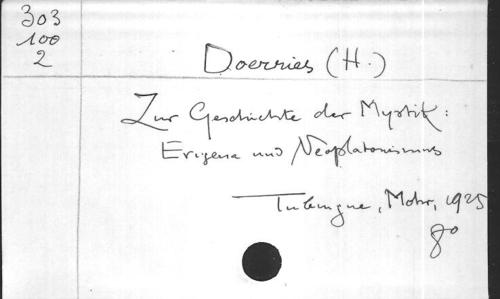 303
100
2
Doerries (H.)
Zur Geschichte der Mystik :
Erigena und Neoplatonismus
Tubingue, Mohr, 1925
8°